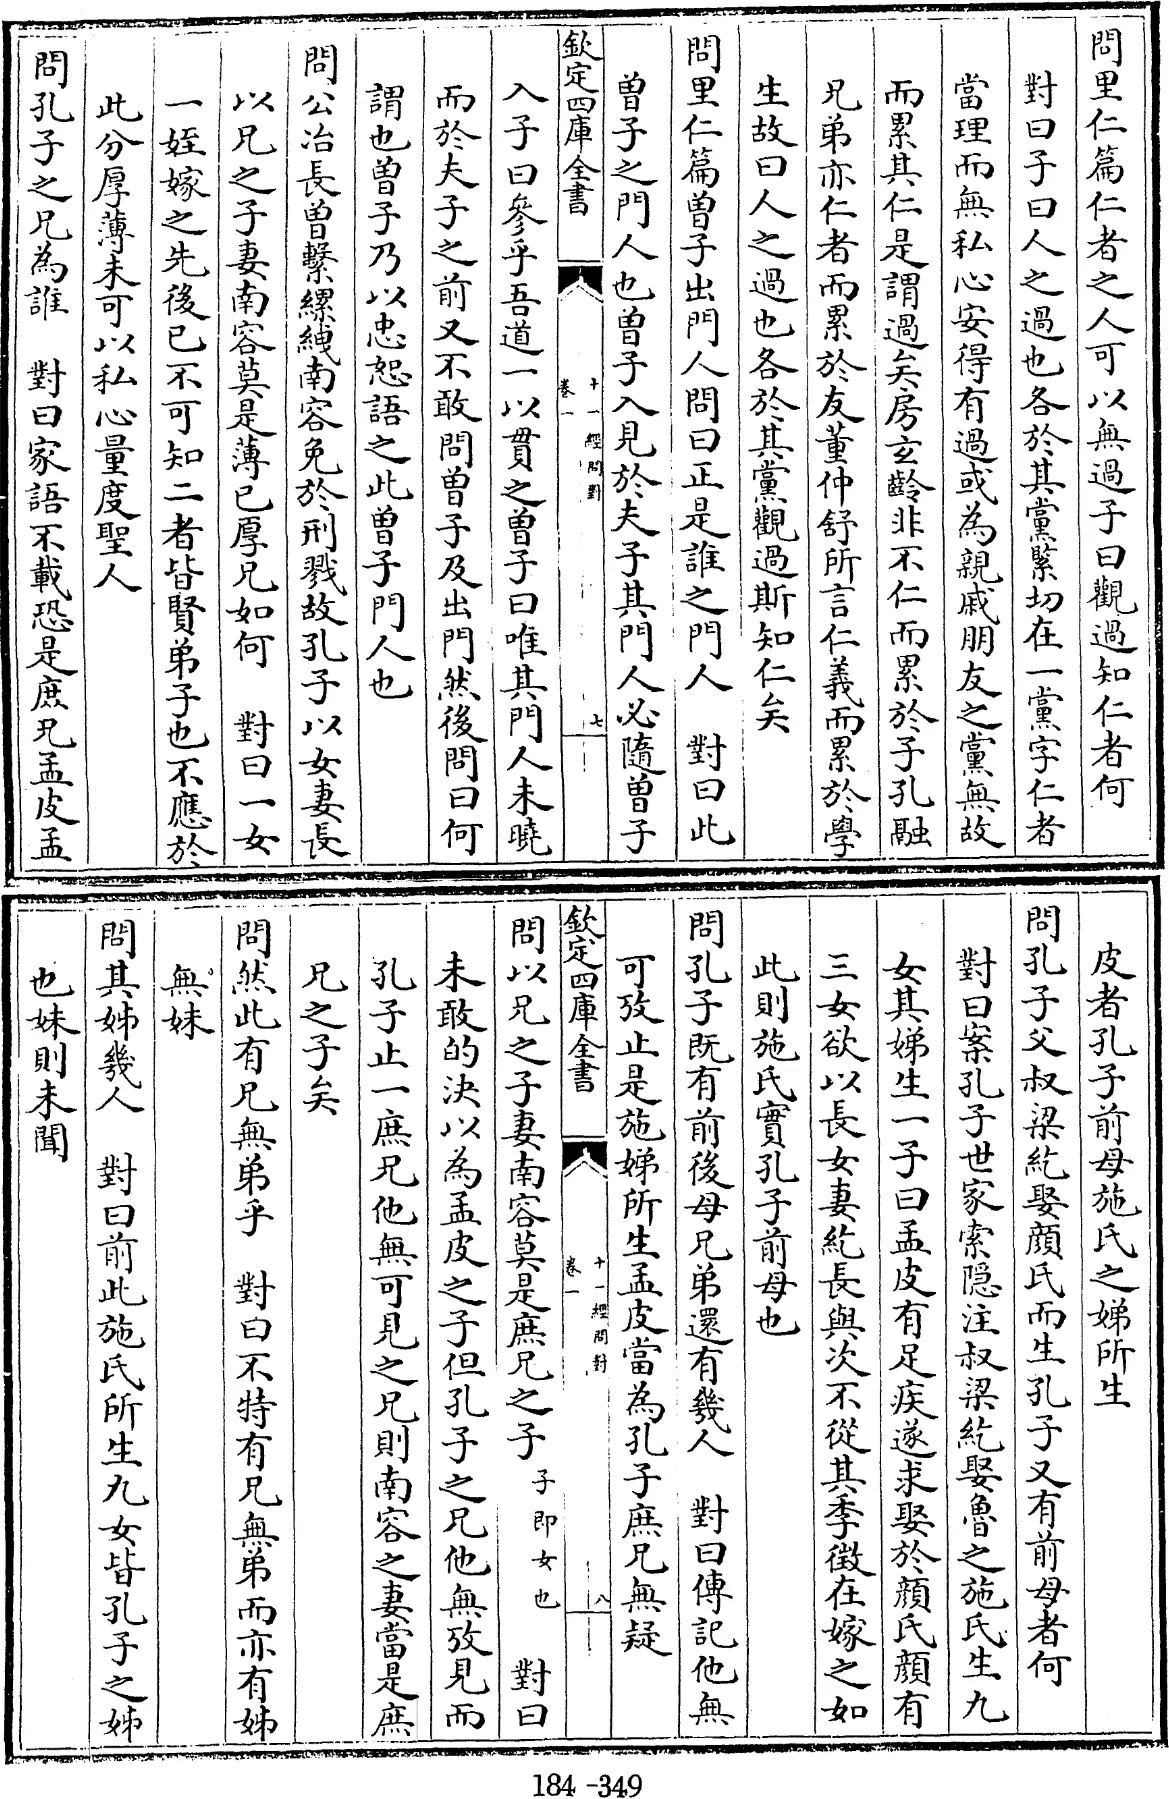 問里仁篇仁者之人可以無過子曰觀過知仁者何
對曰子曰人之過也各於其黨緊切在一黨字仁者
當理而無私心安得有過或為親戚朋友之黨無故
而累其仁是謂過矣房玄齡非不仁而累於子孔融
兄弟亦仁者而累於友董仲舒所言仁義而累於學
生故曰人之過也各於其黨觀過斯知仁矣
問里仁篇曽子出門人問曰正是誰之門人 對曰此
曽子之門人也曽子入見於夫子其門人必隨曽子
欽定四庫全書
十一經問對
卷一
七
入子曰參乎吾道一以貫之曽子曰唯其門人未曉
而於夫子之前又不敢問曽子及出門然後問曰何
謂也曽子乃以忠恕語之此曽子門人也
問公冶長曽繫縲絏南容免於刑戮故孔子以女妻長
以兄之子妻南容莫是薄已厚兄如何 對曰一女
一姪嫁之先後已不可知二者皆賢弟子也不應於
此分厚薄未可以私心量度聖人
問孔子之兄為誰 對曰家語不載恐是庶兄孟皮孟
皮者孔子前母施氏之娣所生
問孔子父叔梁紇娶顔氏而生孔子又有前母者何
對曰案孔子世家索隱注叔梁紇娶魯之施氏生九
女其娣生一子曰孟皮有足疾遂求娶於顔氏顔有
三女欲以長女妻紇長與次不從其季徵在嫁之如
此則施氏實孔子前母也
問孔子既有前後母兄弟還有幾人 對曰傳記他無
可攷止是施娣所生孟皮當為孔子庶兄無疑
欽定四庫全書
十一經問對
卷一
八
問以兄之子妻南容莫是庶兄之子子即女也 對曰
未敢的決以為孟皮之子但孔子之兄他無攷見而
孔子止一庶兄他無可見之兄則南容之妻當是庶
兄之子矣
問然此有兄無弟乎 對曰不特有兄無弟而亦有姊
無妹
問其姊幾人 對曰前此施氏所生九女皆孔子之姊
也妹則未聞
184-349